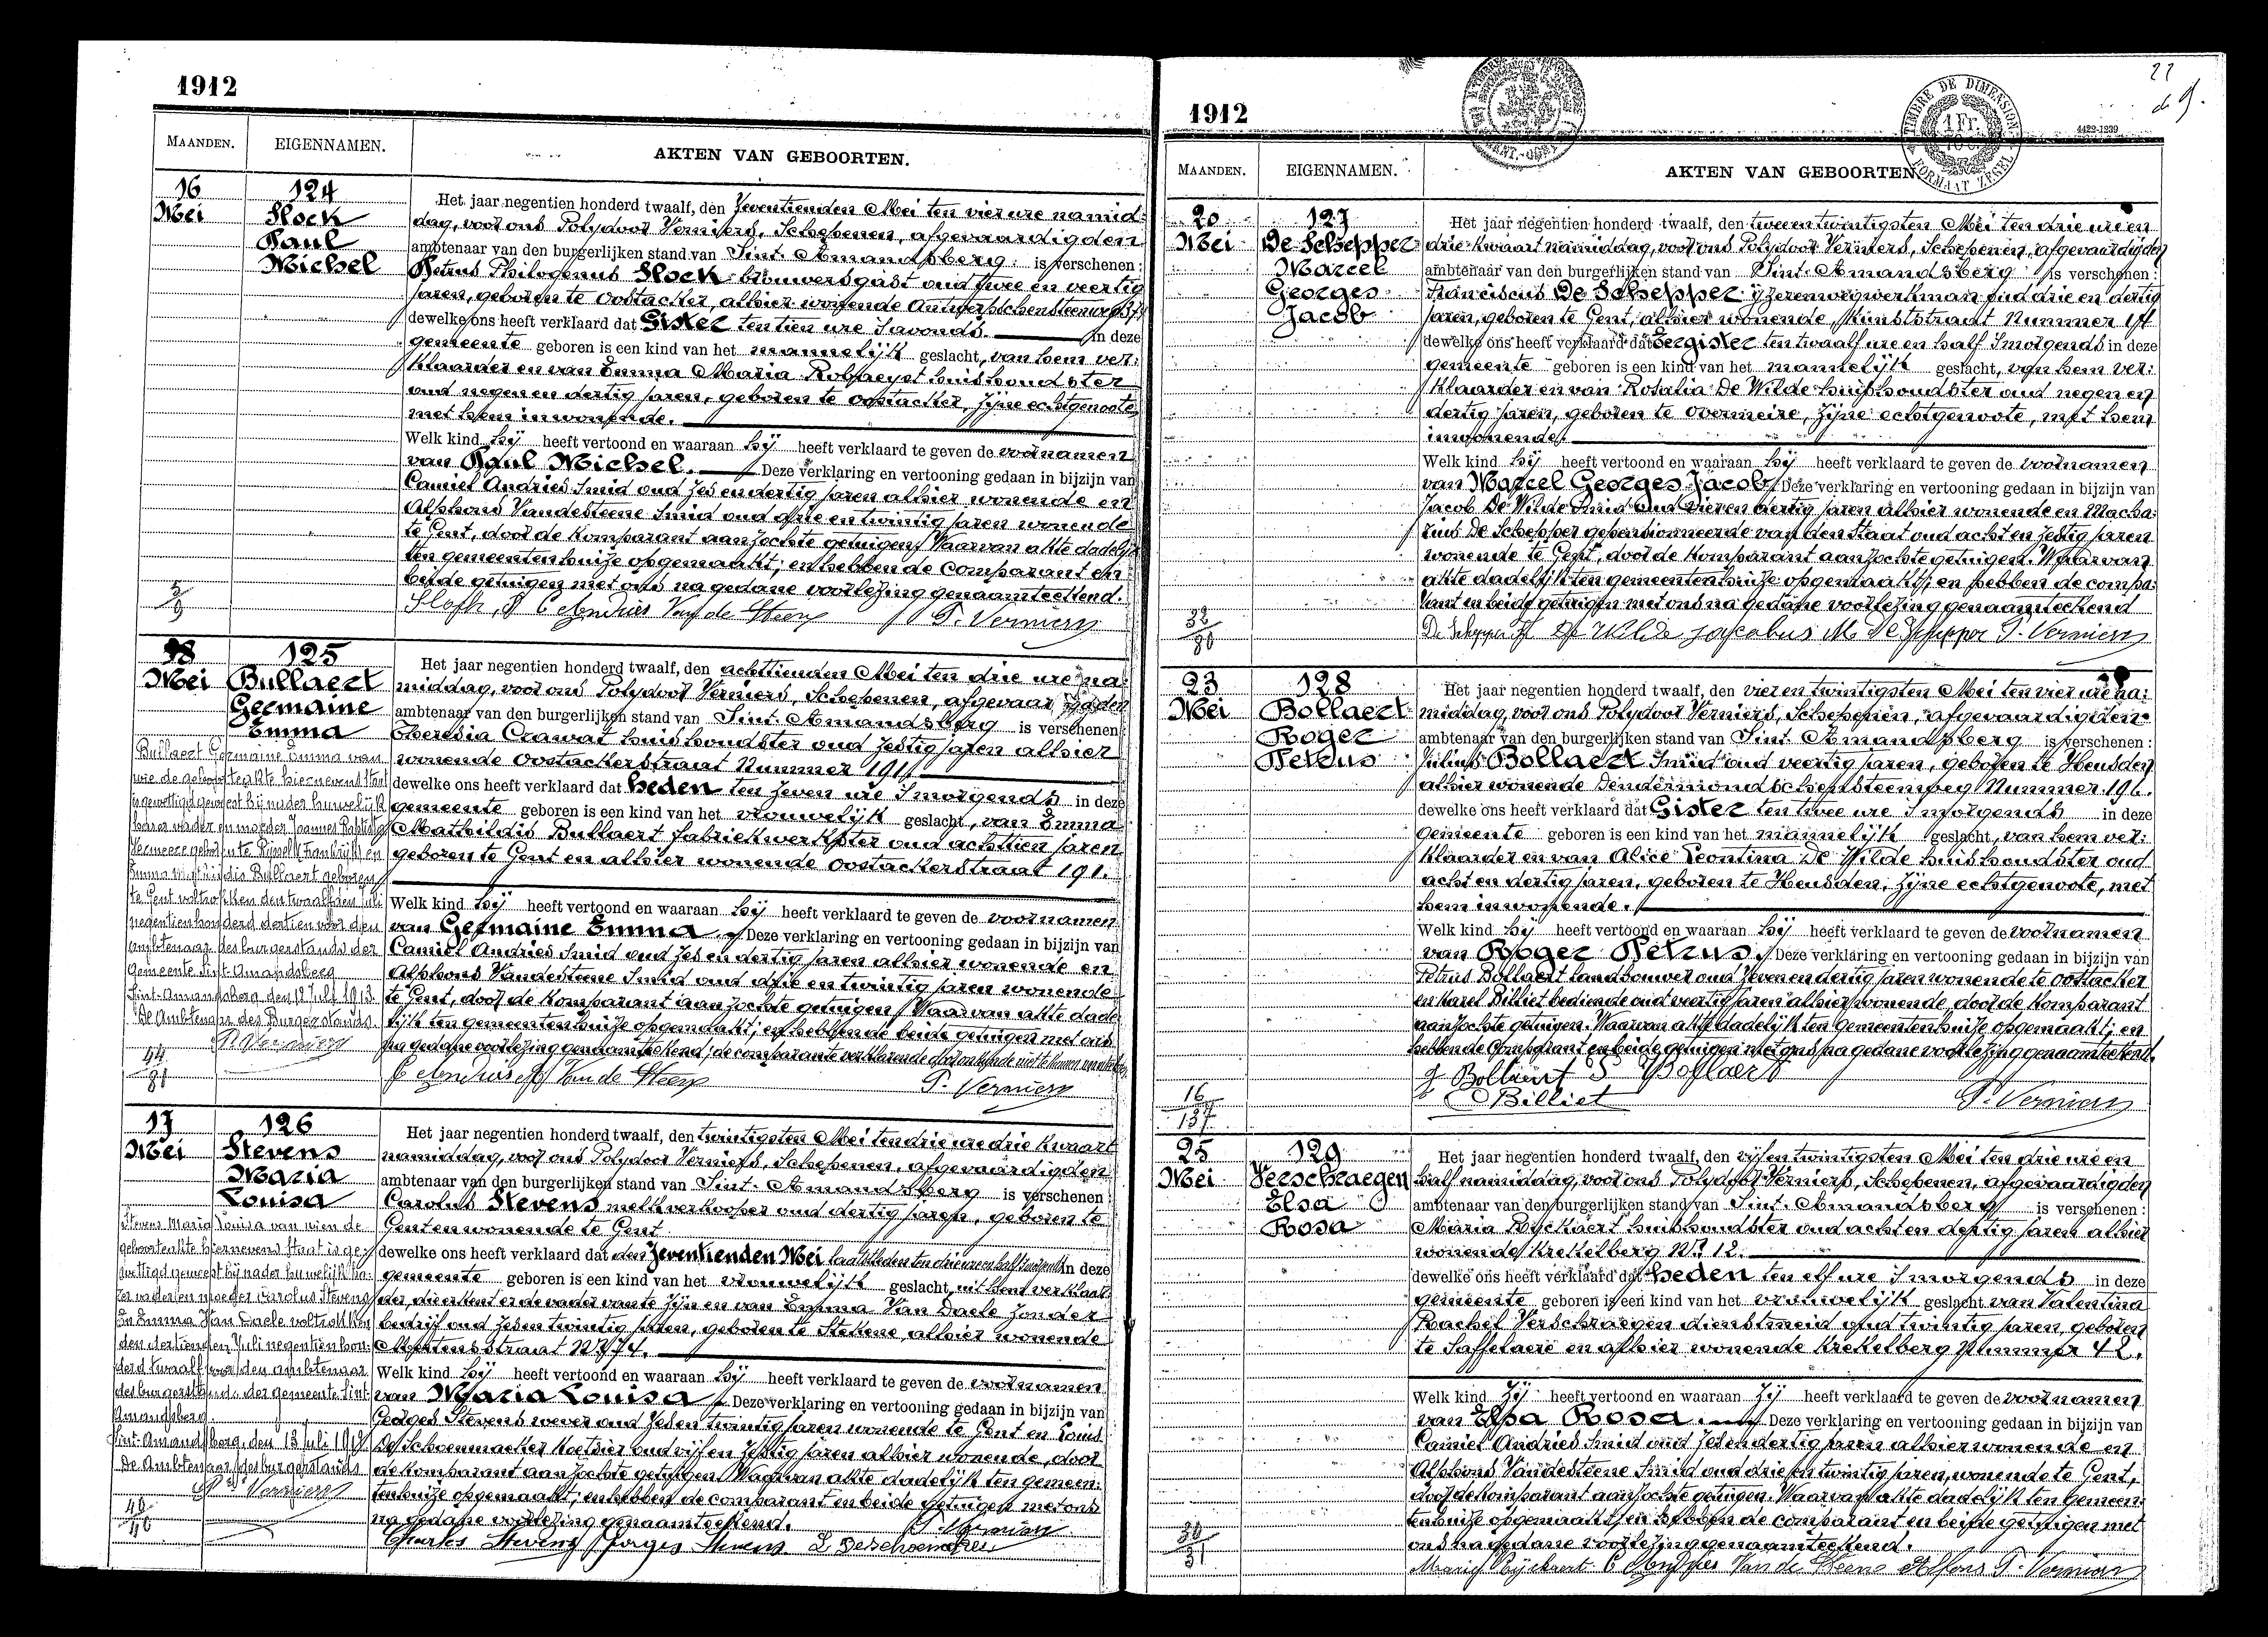 1912
MAANDEN. EIGENNAMEN. AKTEN VAN GEBOORTEN.
16 Mei
124
Slock
Paul
Michel
Het jaar negentien honderd twaalf, den Zeventienden Mei ten vier ure namid-
dag, voor ons Polydoor Verniers, Schepenen, afgevaardigden
ambtenaar van den burgerlijken stand van Sint-Amandsberg is verschenen:
Petrus Philogenus Slock brouwersgast oud twee en veertig
jaren, geboren te Oostacker, alhier wonende Antwerpschensteenweg
dewelke ons heeft verklaard dat Gister ten tien ure 's avonds in deze
gemeente geboren is een kind van het mannelijk geslacht, van hem ver-
klaarder en van Emma Maria huishoudster
oud negen en dertig jaren, geboren te Oostacker, zijne echtgenoote
met hem inwonende.
Welk kind hij heeft vertoond en waaraan hij heeft verklaard te geven de voornamen
van Paul Michel. Deze verklaring en vertooning gedaan in bijzijn van
Camiel Andries Smid oud zes en dertig jaren alhier wonende en
Alphons Vandesteene Smid oud drie en twintig jaren wonende
te Gent, door de komparant aanzochte getuigen. Waarvan akte dadelijk
ten gemeentenhuize opgemaakt; en hebben de comparant en
beide getuigen met ons na gedane voorlezing genaamteekend.
P. Verniers
5/9
18 Mei
125
Bullaert
Germaine
Emma
Het jaar negentien honderd twaalf, den achttienden Mei ten drie ure na-
middag, voor ons Polydoor Verniers, Schepenen, afgevaardigden
ambtenaar van den burgerlijken stand van Sint-Amandsberg is verschenen:
Theresia Crawat huishoudster oud zestig jaren alhier
wonende Oostackerstraat Nummer 191
dewelke ons heeft verklaard dat heden ten zeven ure 's morgends in deze
gemeente geboren is een kind van het vrouwelijk geslacht, van Emma
Mathildis Bullaert fabriekwerkster oud achttien jaren
geboren te Gent en alhier wonende Oostackerstraat 191.
Welk kind hij heeft vertoond en waaraan hij heeft verklaard te geven de voornamen
van Germaine Emma. Deze verklaring en vertooning gedaan in bijzijn van
Camiel Andries Smid oud zes en dertig jaren alhier wonende en
Alphons Vandesteene Smid oud drie en twintig jaren wonende
te Gent, door de komparant aanzochte getuigen. Waarvan akte dade-
lijk ten gemeentenhuize opgemaakt; en hebben de beide getuigen met ons
na gedane voorlezing genaamteekend; de comparante verklarende
P. Verniers
Bullaert Germaine Emma van
wie de geboorteakte hiernevens staat
is gewettigd geweest bij nader huwelijk
harer vader en moeder Joannes Baptista
Vermeere geboren te Rijssel Frankrijk en
Emma Mathildis Bullaert geboren
te Gent voltrokken den twaalfden juli
negentien honderd dertien voor den
ambtenaar des burgerstands der
Gemeente Sint-Amandsberg
Sint-Amandsberg, den 12 Juli 1913
De Ambtenaar des Burgerstands
P. Verniers
44/81
17 Mei
126
Stevens
Maria
Louisa
Het jaar negentien honderd twaalf, den twintigsten Mei ten drie ure drie kwaart
namiddag, voor ons Polydoor Verniers, Schepenen, afgevaardigden
ambtenaar van den burgerlijken stand van Sint-Amandsberg is verschenen:
Carolus Stevens melkverkooper oud dertig jaren, geboren te
Gent en wonende te Gent
dewelke ons heeft verklaard dat den Zeventienden Mei laatstleden ten drie ure en half in deze
gemeente geboren is een kind van het vrouwelijk geslacht, uit hem verklaar-
der, die erkent er de vader van te zijn en van Emma Van Daele zonder
bedrijf oud zes en twintig jaren, geboren te Stekene, alhier wonende
Mertensstraat Nr 74.
Welk kind hij heeft vertoond en waaraan hij heeft verklaard te geven de voornamen
van Maria Louisa Deze verklaring en vertooning gedaan in bijzijn van
Georges Stevens wever oud zes en twintig jaren wonende te Gent en Louis
De Schoenmaeker Koetsier oud vijf en zestig jaren alhier wonende, door
de komparant aanzochte getuigen. Waarvan akte dadelijk ten gemeen-
tenhuize opgemaakt; en hebben de comparant en beide getuigen met ons
na gedane voorlezing genaamteekend.
P. Verniers
Charles Stevens Jorges Stevens L Deschoenmaeker
Stevens Maria Louisa van wien de
geboorteakte hiernevens staat is ge-
wettigd geweest bij nader huwelijk ha-
rer vader en moeder Carolus Stevens
en Emma Van Daele voltrokken
den dertienden Juli negentien hon-
derd twaalf voor den ambtenaar
des burgerstands der gemeente Sint-
Amandsberg.
Sint-Amandsberg, den 13 Juli 1912
De Ambtenaar des burgerstands
P. Verniers
1912
TIMBRE DE DIMENSION
1 Fr.
FORMAAT ZEGEL
22
4422-1239
MAANDEN. EIGENNAMEN. AKTEN VAN GEBOORTEN
20 Mei
127
De Schepper
Marcel
Georges
Jacob
Het jaar negentien honderd twaalf, den twee en twintigsten Mei ten drie ure en
drie kwaart namiddag, voor ons Polydoor Verniers, Schepenen, afgevaardigden
ambtenaar van den burgerlijken stand van Sint-Amandsberg is verschenen:
Franciscus De Schepper ijzerenwegwerkman oud drie en dertig
jaren, geboren te Gent, alhier wonende, Kunststraat Nummer
dewelke ons heeft verklaard dat Eergister ten twaalf ure en half 's morgends in deze
gemeente geboren is een kind van het mannelijk geslacht, van hem ver-
klaarder en van Rosalia De Wilde huishoudster oud negen en
dertig jaren, geboren te Overmeire, zijne echtgenoote, met hem
inwonende.
Welk kind hij heeft vertoond en waaraan hij heeft verklaard te geven de voornamen
van Marcel Georges Jacob Deze verklaring en vertooning gedaan in bijzijn van
Jacob De Wilde Smid oud vier en dertig jaren alhier wonende en Macha-
rius De Schepper gepensionneerde van den Staat oud acht en zestig jaren
wonende te Gent, door de komparant aanzochte getuigen. Waarvan
akte dadelijk ten gemeentenhuize opgemaakt; en hebben de compa-
rant en beide getuigen met ons na gedane voorlezing genaamteekend
De Schepper F De Wilde Jacobus M. De Schepper P. Verniers
32/80
23 Mei
128
Bollaert
Roger
Petrus
Het jaar negentien honderd twaalf, den vier en twintigsten Mei ten vier ure na-
middag, voor ons Polydoor Verniers, Schepenen, afgevaardigden
ambtenaar van den burgerlijken stand van Sint-Amandsberg is verschenen:
Julius Bollaert Smid oud veertig jaren, geboren te Heusden
alhier wonende Dendermondschensteenweg Nummer 196.
dewelke ons heeft verklaard dat Gister ten twee ure 's morgends in deze
gemeente geboren is een kind van het mannelijk geslacht, van hem ver-
klaarder en van Alice Leontina De Wilde huishoudster oud
acht en dertig jaren, geboren te Heusden, zijne echtgenoote, met
hem inwonende.
Welk kind hij heeft vertoond en waaraan hij heeft verklaard te geven de voornamen
van Roger Petrus Deze verklaring en vertooning gedaan in bijzijn van
Petrus Bollaert landbouwer oud zeven en dertig jaren wonende te Oostacker
en Karel Billiet bediende oud veertig jaren alhier wonende, door de komparant
aanzochte getuigen. Waarvan akte dadelijk ten Gemeentenhuize opgemaakt; en
hebben de Comparant en beide getuigen met ons na gedane voorlezing genaamteekend.
J Bollaert P Bollaert
C Billiet P. Verniers
16/137
25 Mei
129
Verschraegen
Elsa
Rosa
Het jaar negentien honderd twaalf, den vijf en twintigsten Mei ten drie ure en
half namiddag, voor ons Polydoor Verniers, Schepenen, afgevaardigden
ambtenaar van den burgerlijken stand van Sint-Amandsberg is verschenen:
Maria Ryckaert huishoudster oud acht en dertig jaren alhier
wonende Krekelberg Nr 12.
dewelke ons heeft verklaard dat heden ten elf ure 's morgends in deze
gemeente geboren is een kind van het vrouwelijk geslacht van Valentina
Rachel Verschraegen dienstmeid oud twintig jaren, geboren
te Saffelaere en alhier wonende Krekelberg Nummer 42.
Welk kind zij heeft vertoond en waaraan zij heeft verklaard te geven de voornamen
van Elsa Rosa. Deze verklaring en vertooning gedaan in bijzijn van
Camiel Andries Smid oud zes en dertig jaren alhier wonende en
Alphons Vandesteene Smid oud drie en twintig jaren, wonende te Gent,
door de komparant aanzochte getuigen. Waarvan akte dadelijk ten Gemeen-
tenhuize opgemaakt; en hebben de comparant en beide getuigen met
ons na gedane voorlezing genaamteekend.
Maria Ryckaert C Andries Van de Steene Alfons P. Verniers